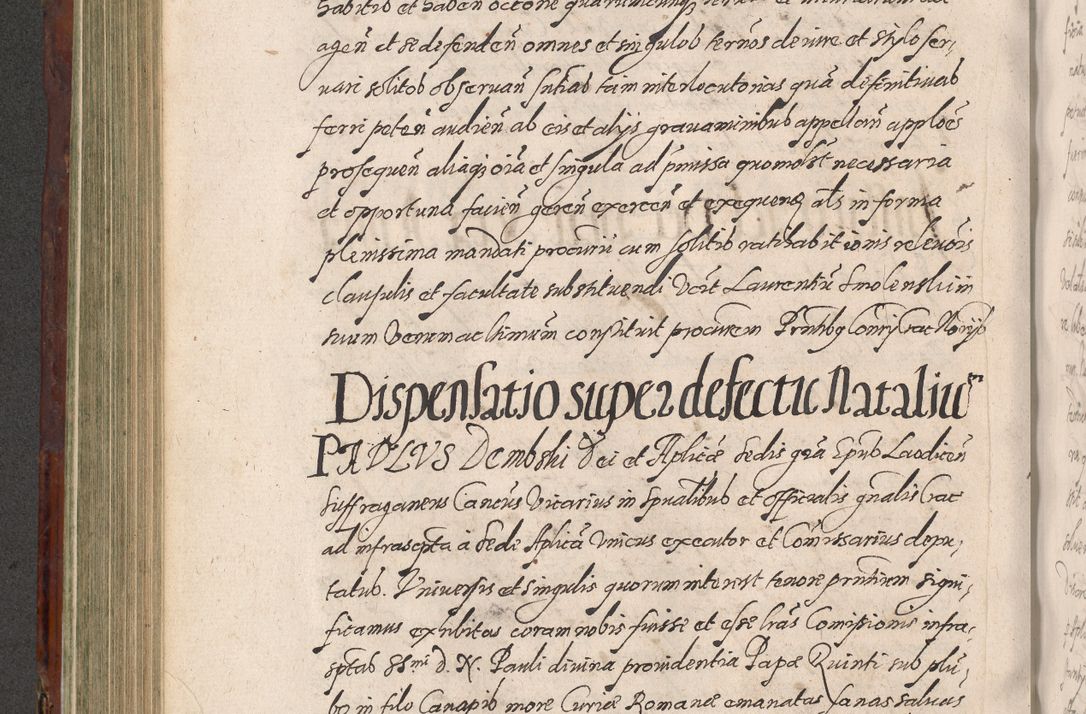 agen̄ et se defenden̄ omnes et singulos termōs de iure et stylo ser,
vari solitos observan̄ sn̄tias tam interlocutorias quā definitivas
ferri peten̄ audien̄ ab eis et alijs gravaminibus appellan̄ applōes
prosequen̄ aliaq̄ oīa et singula ad p̄missa quomolst̄ necessaria
et opportuna facien̄ geren̄ exercen̄ et exequen̄ als̄ in forma
plenissima mandati procurij cum solitis ratihabitionis relevōis
clausulis et facultate substituendi Laurentiū Smolenskij in
suum verum ac ltimum constituit procurem Prntibq
Dispensatio super defectu Nataliū
PAULUS Dembski Dei et Aplicæ Sedis grā Epus Laodicen̄
Suffraganeus Cancūs Vicarius in Spūalibus et Officialis gnalis Crac
ad infrascpta à Sede Aplicā Unicus executor et Comissarius depu,
tatus. Universis et singulis quorum interest tenore prntium signi,
ficamus exhibitas coram nobis fuisse et esse lrās Comissionis infra,
sptas SSmi D. N. Pauli divina providentia Papæ Quinti sub plū,
bo in filo Canapis more Curiæ Romanæ emanatas sanas salvas